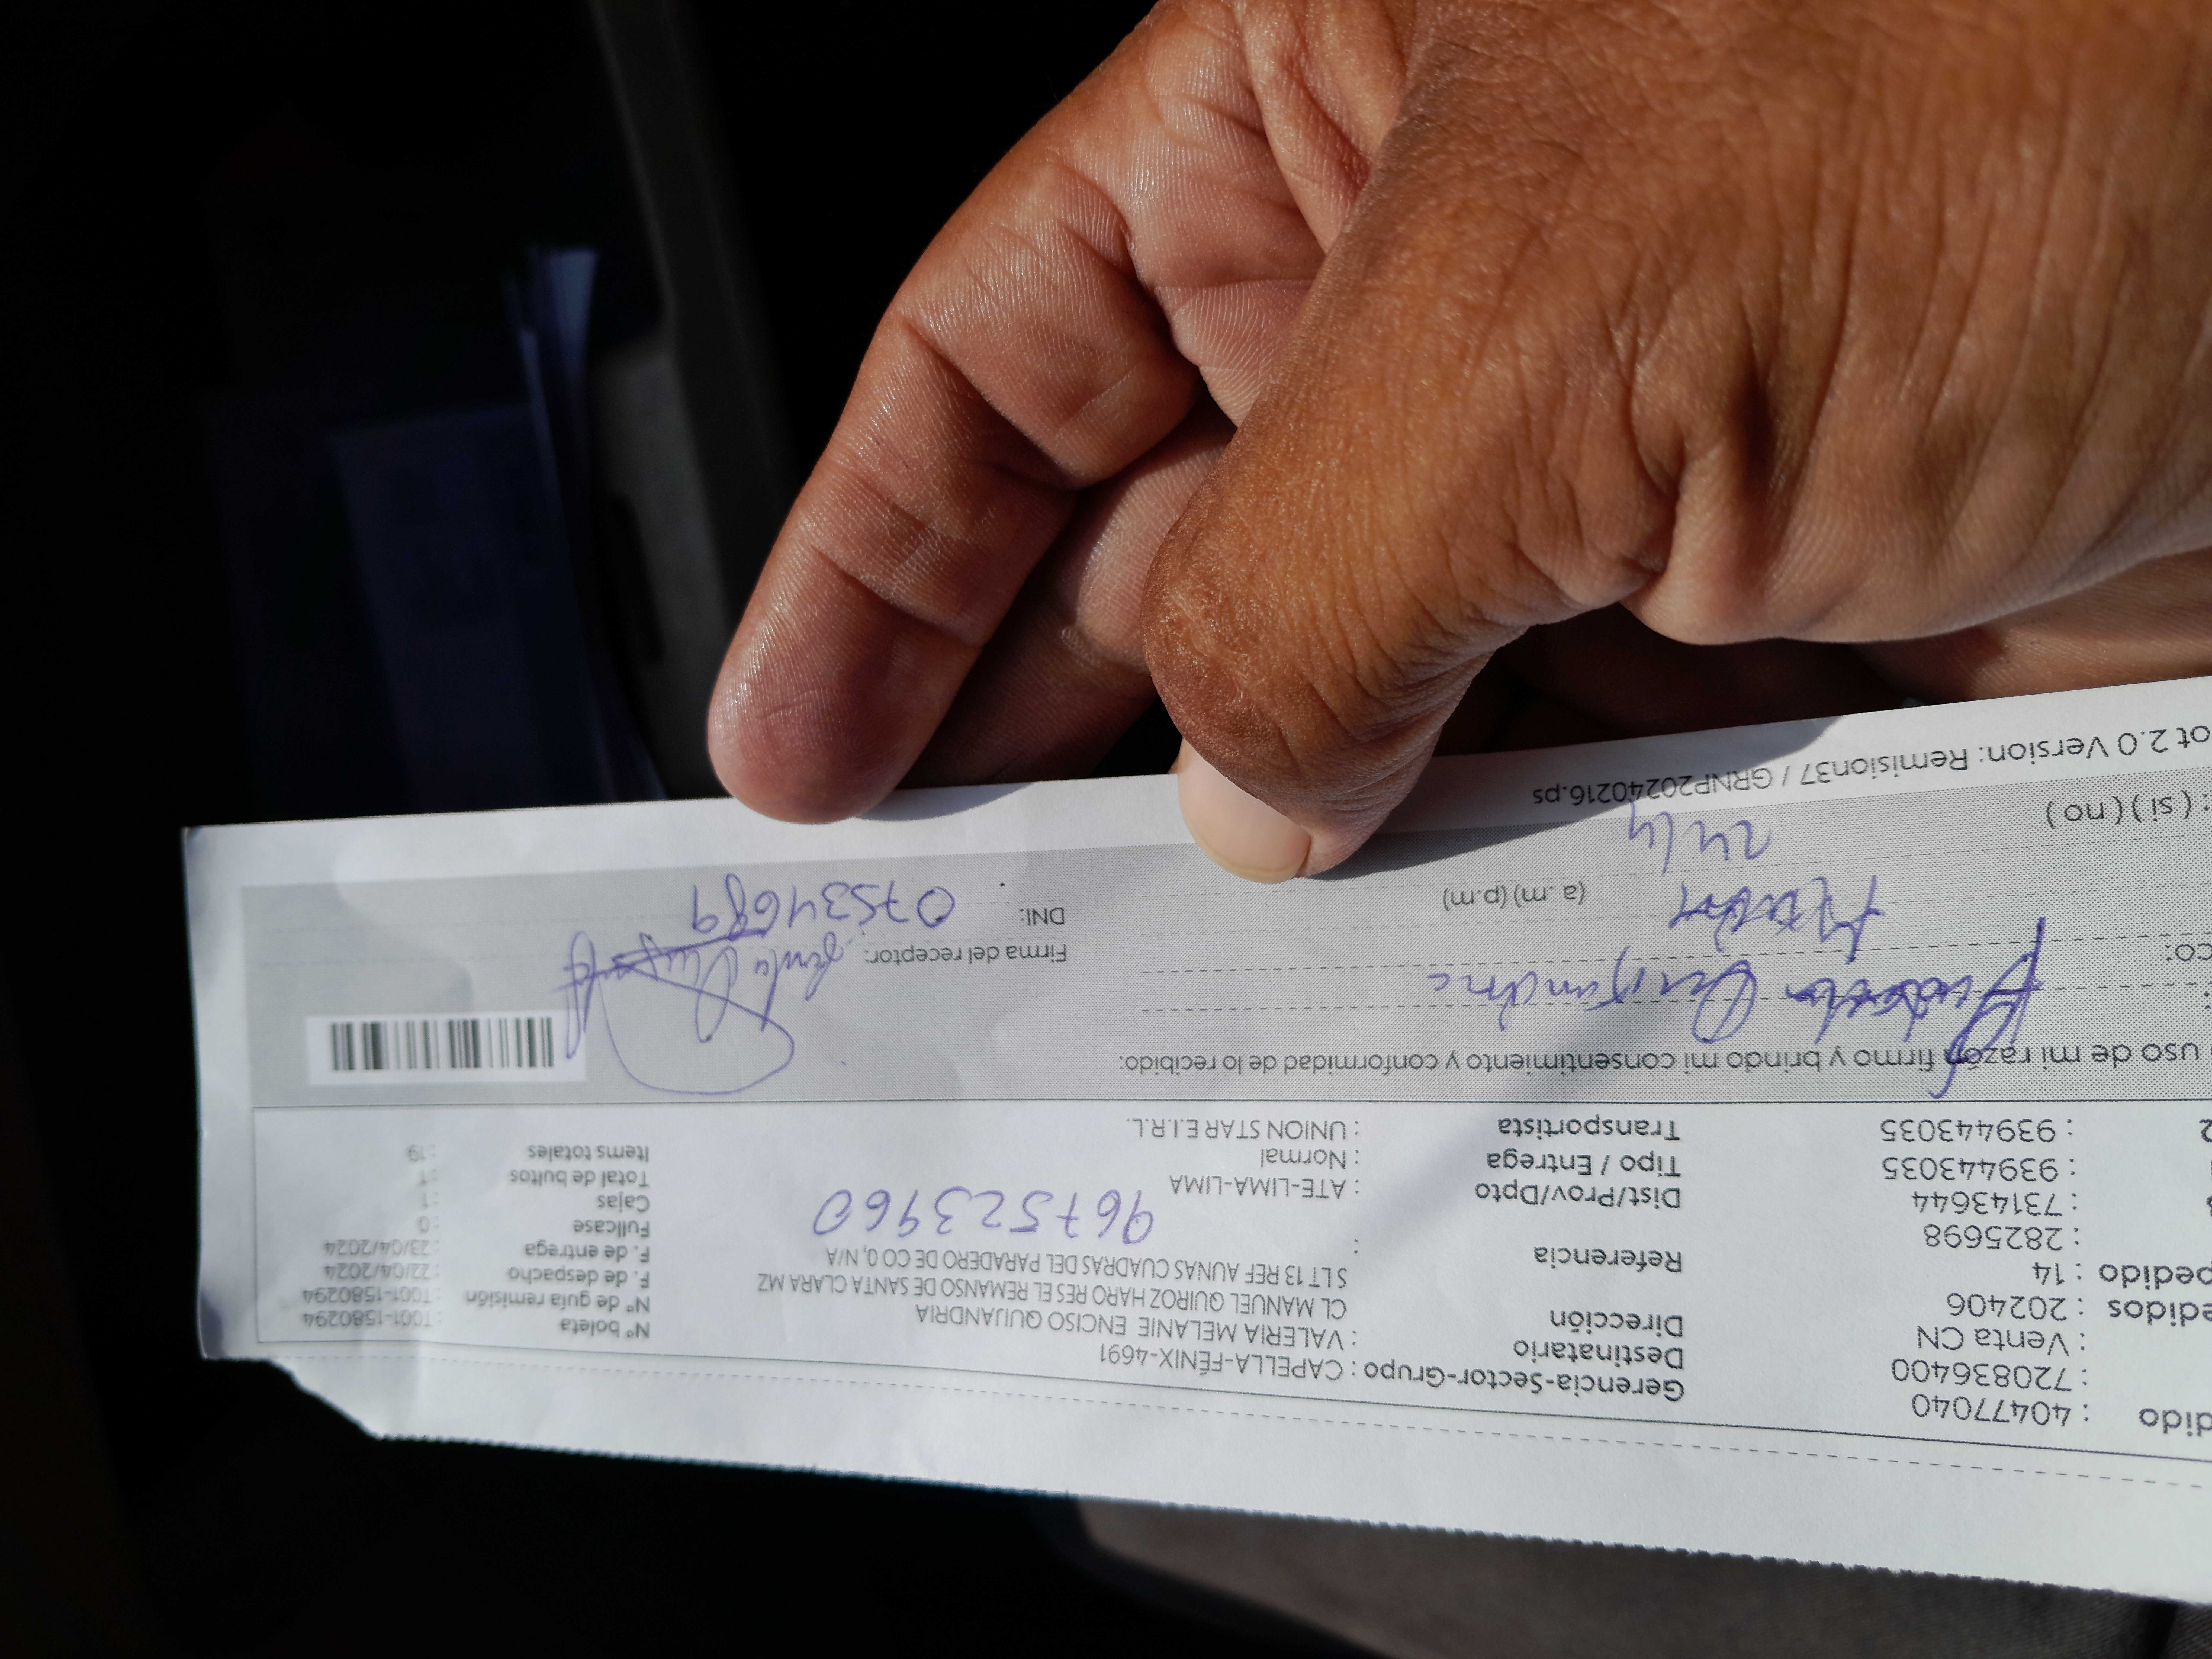 dido : 40477040
: 720836400
: Venta CN
edidos : 202406
pedido : 14
: 2825698
: 73143644
: 939443035
2 : 939443035
Gerencia-Sector-Grupo : CAPELLA-FÉNIX-4691
Destinatario : VALERIA MELANIE ENCISO QUIJANDRIA
Dirección CL MANUEL QUIROZ HARO RES EL REMANSO DE SANTA CLARA MZ
S LT 13 REF AUNAS CUADRAS DEL PARADERO DE CO 0, N/A
Referencia :
967523960
Dist/Prov/Dpto : ATE-LIMA-LIMA
Tipo / Entrega : Normal
Transportista : UNION STAR E.I.R.L.
N° boleta : T001-1580294
N° de guia remisión : T001-1580294
F. de despacho : 22/04/2024
F. de entrega : 23/04/2024
Fullcase : 0
Cajas : 1
Total de bultos : 1
Items totales : 19
uso de mi razón firmo y brindo mi consentimiento y conformidad de lo recibido:
co:
(a.m) (p.m)
24/4
: ( si ) ( no )
Firma del receptor:
DNI: 07534689
ot 2.0 Version: Remision37 / GRNP20240216.ps